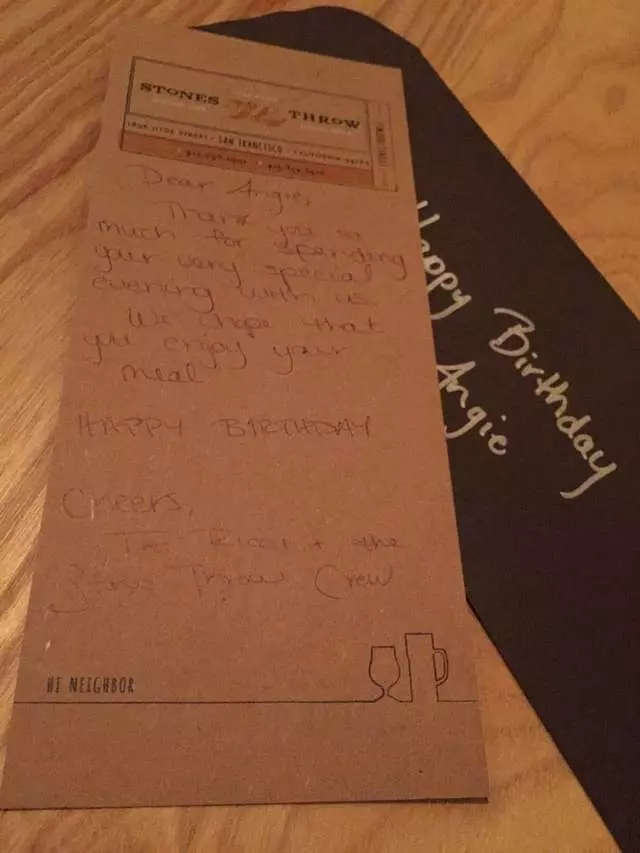 STONES THROW
SAN FRANCISCO
Dear Angie,
Thank you so
much for spending
your very special
evening with us
We hope that
you enjoy your
meal
HAPPY BIRTHDAY
Cheers,
+ the
Stones Throw Crew
HI NEIGHBOR
Happy Birthday
Angie